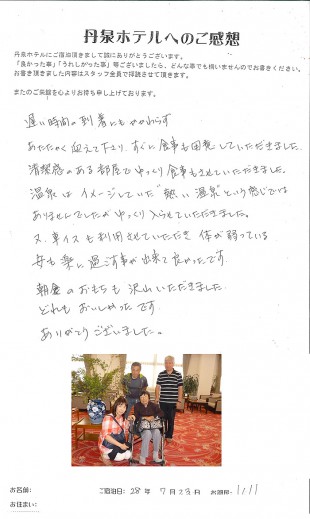 丹泉ホテルへのご感想
丹泉ホテルにご宿泊頂きまして誠にありがとうございます。
「良かった事」「うれしかった事」等ございましたら、どんな事でも構いませんのでお書きください。
お書き頂きました内容はスタッフ全員で拝読させて頂きます。
またのご来館を心よりお待ち申し上げております。
遅い時間の到着にもかかわらず
あたたかく迎えて下さり、すぐに食事も用意していただきました。
清潔感のある部屋でゆっくり食事もさせていただきました。
温泉はイメージしていた"熱い温泉"という感じでは
ありませんでしたがゆっくり入らせていただきました。
又、車イスも利用させていただき 体が弱っている
母も楽に過ごす事が出来て良かったです。
朝食のおもちも沢山いただきました
どれもおいしかったです
ありがとうございました。
お名前:
ご宿泊日: 28年 7月23日
お部屋:
お住まい: